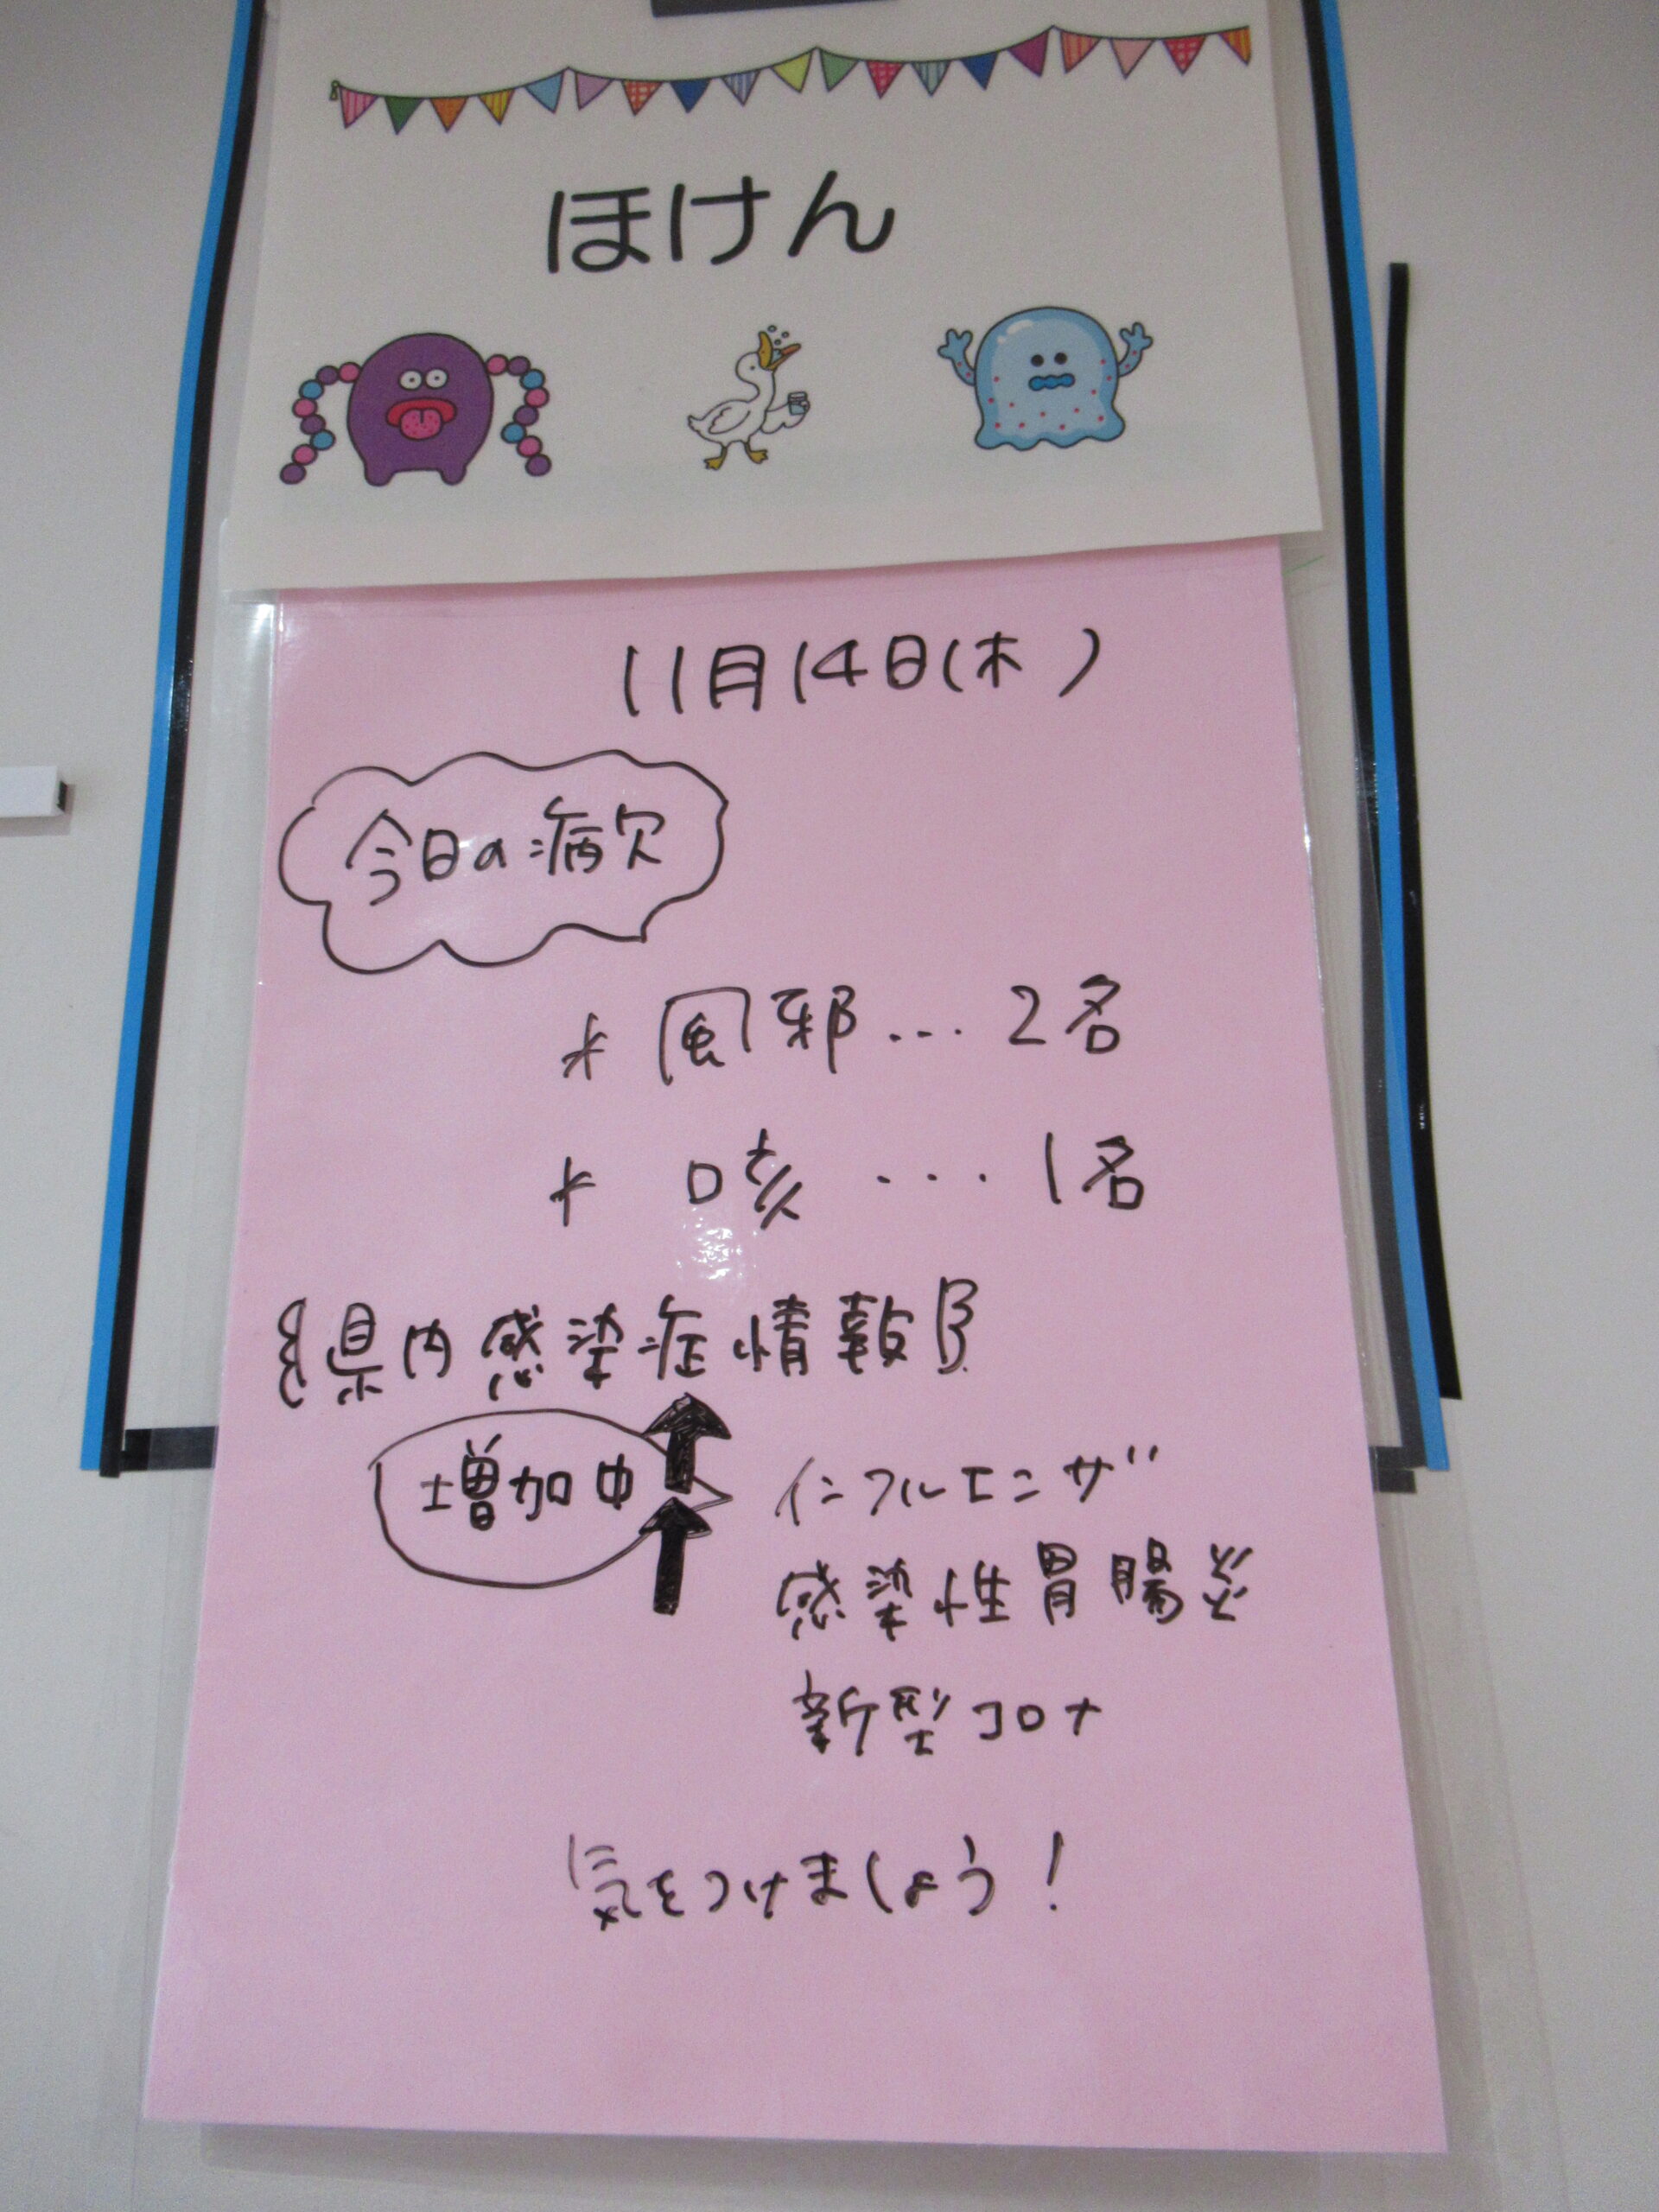 ほけん
11月14日(木)
今日の病欠
* 風邪... 2名
* 咳 ... 1名
県内感染症情報
増加中
インフルエンザ
感染性胃腸炎
新型コロナ
気をつけましょう!